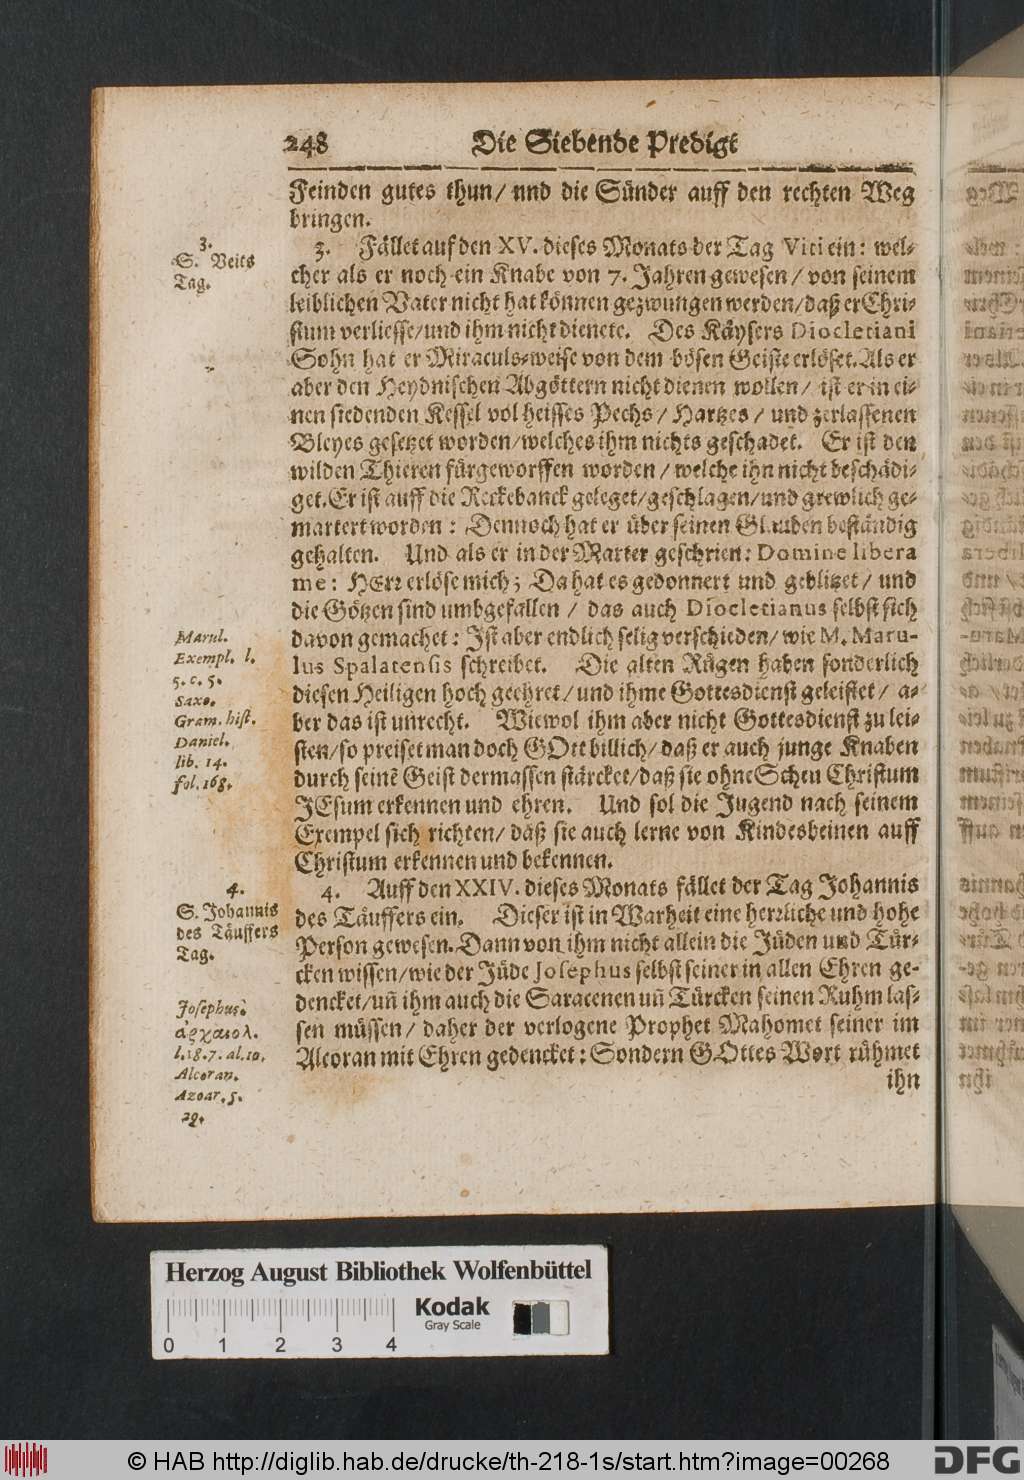 248 Die Siebende Predigt
Feinden gutes thun/ nnd die Sünder auff den rechten Weg
bringen.
3.
S. Veits
Tag.
3. Fället auf den XV. dieses Monats der Tag Viti ein: wel-
cher als er noch ein Knabe von 7. Jahren gewesen/ von seinem
leiblichen Vater nicht hat können gezwungen werden/ daß er Chri-
stum verliesse/ und ihm nicht dienete. Des Käysers Diocletiani
Sohn hat er Miraculs-weise von dem bösen Geiste erlöset. Als er
aber den Heydnischen Abgöttern nicht dienen wollen/ ist er in ei-
nen siedenden Kessel vol heisses Pechs/ Hartzes/ und zerlassenen
Bleyes gesetzet worden/ welches ihm nichts geschadet. Er ist den
wilden Thieren fürgeworffen worden/ welche ihn nicht beschädi-
get. Er ist auff die Reckebanck geleget/ geschlagen/ und grewlich ge-
martert worden: Dennoch hat er über seinen Glauben beständig
gehalten. Und als er in der Marter geschrien: Domine libera
me: HErr erlöse mich; Da hat es gedonnert und geblitzet/ und
die Götzen sind umbgefallen/ das auch Diocletianus selbst sich
davon gemachet: Ist aber endlich selig verschieden/ wie M. Maru-
lus Spalatensis schreibet. Die alten Rügen haben sonderlich
diesen Heiligen hoch geehret/ und ihme Gottesdienst geleistet/ a-
ber das ist unrecht. Wiewol ihm aber nicht Gottesdienst zu lei-
sten/ so preiset man doch GOtt billich/ daß er auch junge Knaben
durch seinē Geist dermassen stärcket/ daß sie ohne Scheu Christum
JEsum erkennen und ehren. Und sol die Jugend nach seinem
Exempel sich richten/ daß sie auch lerne von Kindesbeinen auff
Christum erkennen und bekennen.
Marul.
Exempl. l.
5. c. 5.
Saxo.
Gram. hist.
Daniel.
lib. 14.
fol. 168.
4.
S. Johannis
des Täuffers
Tag.
4. Auff den XXIV. dieses Monats fället der Tag Johannis
des Täuffers ein. Dieser ist in Warheit eine herrliche und hohe
Person gewesen. Dann von ihm nicht allein die Jüden und Tür-
cken wissen/ wie der Jüde Josephus selbst seiner in allen Ehren ge-
dencket/ uñ ihm auch die Saracenen uñ Türcken seinen Ruhm las-
sen müssen/ daher der verlogene Prophet Mahomet seiner im
Alcoran mit Ehren gedencket: Sondern GOttes Wort rühmet
ihn
Josephus.
ἀρχαιολ.
l. 18. 7. al. 10.
Alcoran.
Azoar. 5.
29.
Herzog August Bibliothek Wolfenbüttel
Kodak
Gray Scale
0 1 2 3 4
© HAB http://diglib.hab.de/drucke/th-218-1s/start.htm?image=00268
DFG